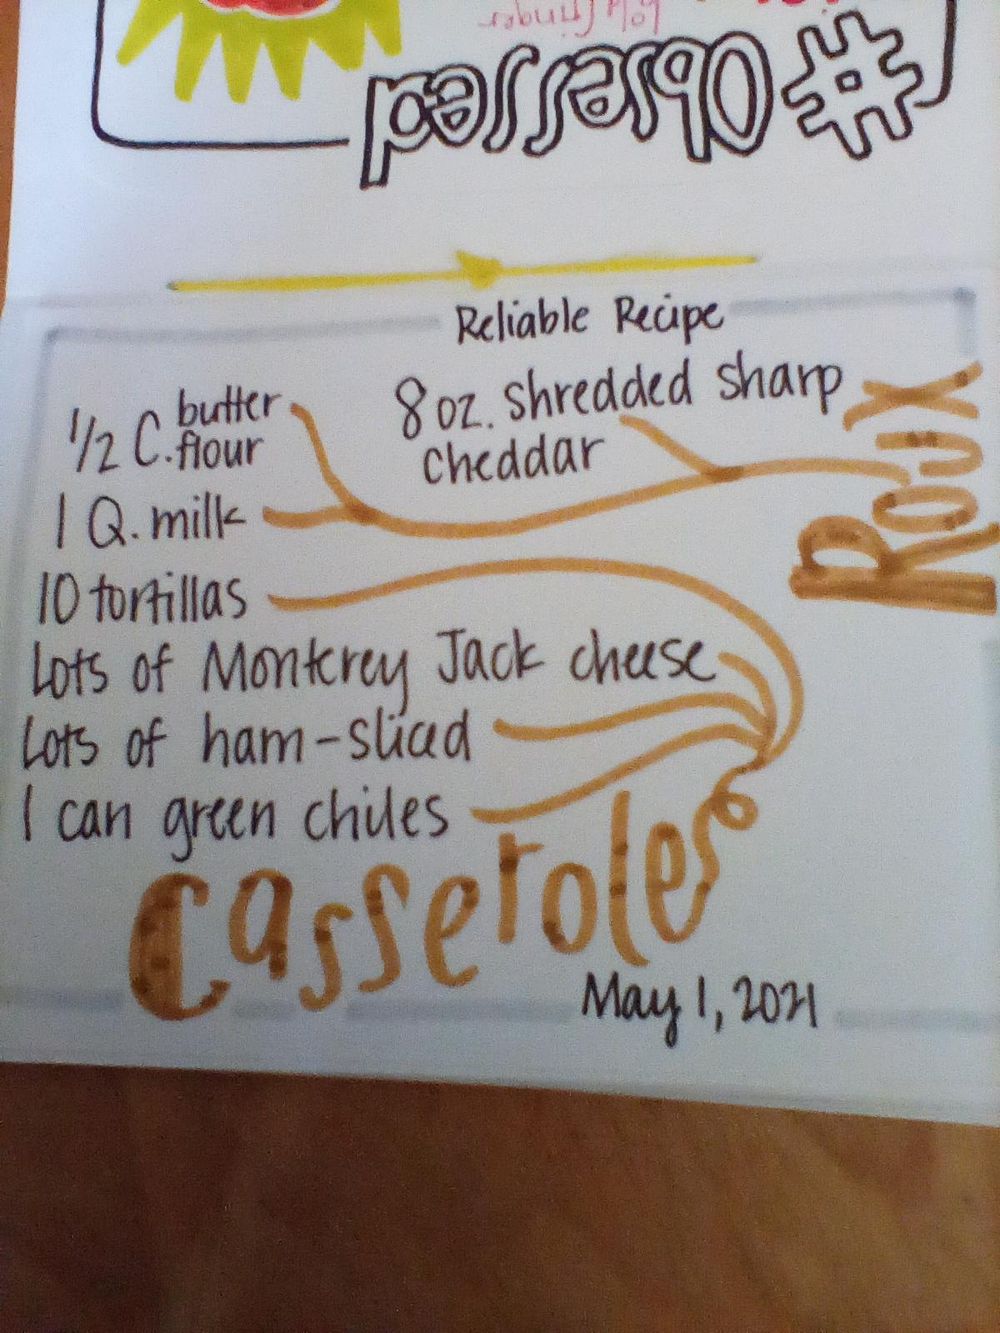 #Obsessed
Reliable Recipe
1/2 C. butter
flour
8 oz. shredded sharp
cheddar
1 Q. milk
Roux
10 tortillas
Lots of Monterey Jack cheese
Lots of ham-sliced
1 can green chiles
Casseroles
May 1, 2021